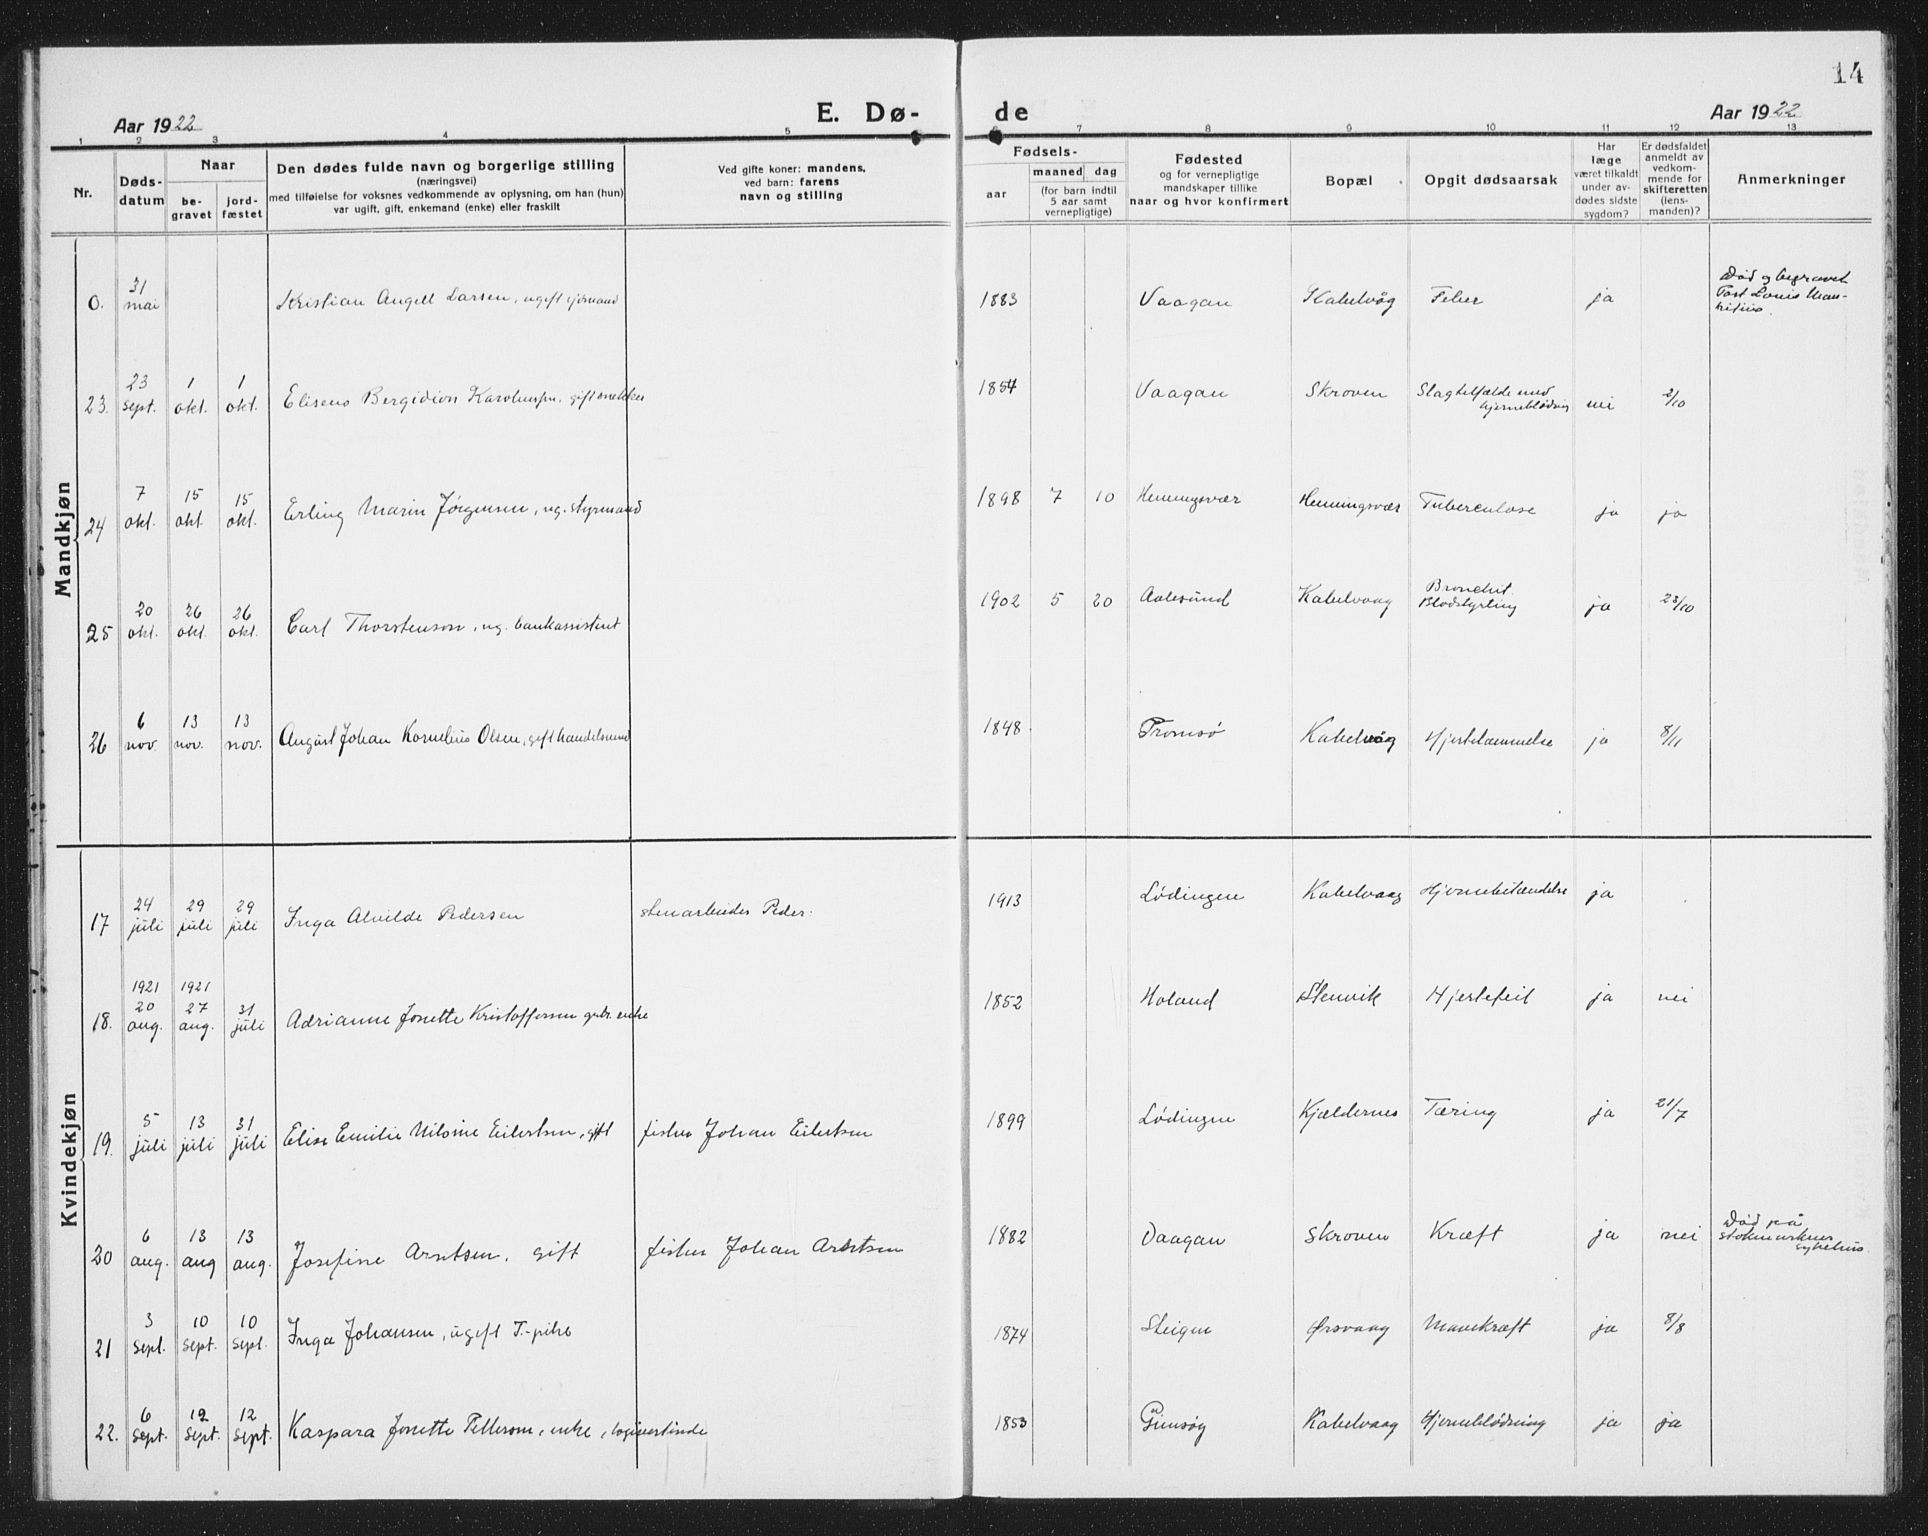 14
Aar 1922
E. Dø-
de
Aar 1922
1 2 3 4 5 6 7 8 9 10 11 12 13
Nr.
Døds-
datum
Naar
be-
gravet
jord-
fæstet
Den dødes fulde navn og borgerlige stilling
(næringsvei)
med tilføielse for voksnes vedkommende av oplysning, om han (hun)
var ugift, gift, enkemand (enke) eller fraskilt
Ved gifte koner: mandens,
ved barn: farens
navn og stilling
Fødsels-
aar
maaned dag
(for barn indtil
5 aar samt
vernepligtige)
Fødested
og for vernepligtige
mandskaper tillike
naar og hvor konfirmert
Bopæl
Opgit dødsaarsak
Har
læge
været tilkaldt
under av-
dødes sidste
sygdom?
Er dødsfaldet
anmeldt av
vedkom-
mende for
skifteretten
(lens-
manden)?
Anmerkninger
Mandkjøn
0. 31 mai Kristian Angell Larsen, ugift sjømand 1883 Vaagan Kabelvåg Feber ja
Død og begravet
Port Louis Mau-
ritius.
23. 23 sept. 1 okt. 1 okt. Eliseus Bergidion gift snekker 1854 Vaagan Skroven Slagtilfælde med
hjerneblødning nei 2/10
24 7 okt. 15 okt. 15 okt. Erling Marin Jørgensen, ug. styrmand 1898 7 10 Henningsvær Henningsvær Tuberculose ja ja
25 20 okt. 26 okt. 26 okt. Carl Thorstenson, ug. bankassistent 1902 5 20 Aalesund Kabelvaag Bronchit.
Blodstyrting ja 23/10
26 6 nov. 13 nov. 13 nov. August Johan Kornelius Olsen, gift handelsmand 1848 Tromsø Kabelvåg Hjertelammelse ja 8/11
Kvindekjøn
17 24 juli 29 juli 29 juli Inga Alvilde Pedersen stenarbeider Peder: 1913 Lødingen Kabelvaag Hjernebetændelse ja
18. 1921 20 aug. 1921 27 aug. 31 juli Adrianne Jonette Kristoffersen enke 1852 Holand Stenvik Hjertefeil ja nei
19. 5 juli 13 juli 31 juli Elise Emilie Nilsine Eilertsen, gift fisker Johan Eilertsen 1899 Lødingen Kjældernes Tæring ja 21/7
20 6 aug. 13 aug 13 aug. Josefine Arntsen, gift fisker Johan Arntsen 1882 Vaagan Skroven Kræft ja nei
Død på
Stokmarknes
sykehus.
21 3 sept. 10 sept. 10 sept. Inga Johansen, ugift T.-pike 1874 Steigen Ørsvaag Mavekræft ja 8/8
22. 6 sept. 12 sept. 12 sept. Kaspara Jonette Pettersen, enke, logivertinde 1853 Gimsøy Kabelvaag Hjerneblødning ja ja